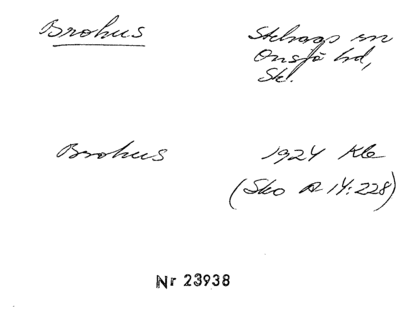 Brohus
Stehags sn
Onsjö hd,
Sk.
Brohus
1924 Kb
(Sko A 14:228)
Nr 23938